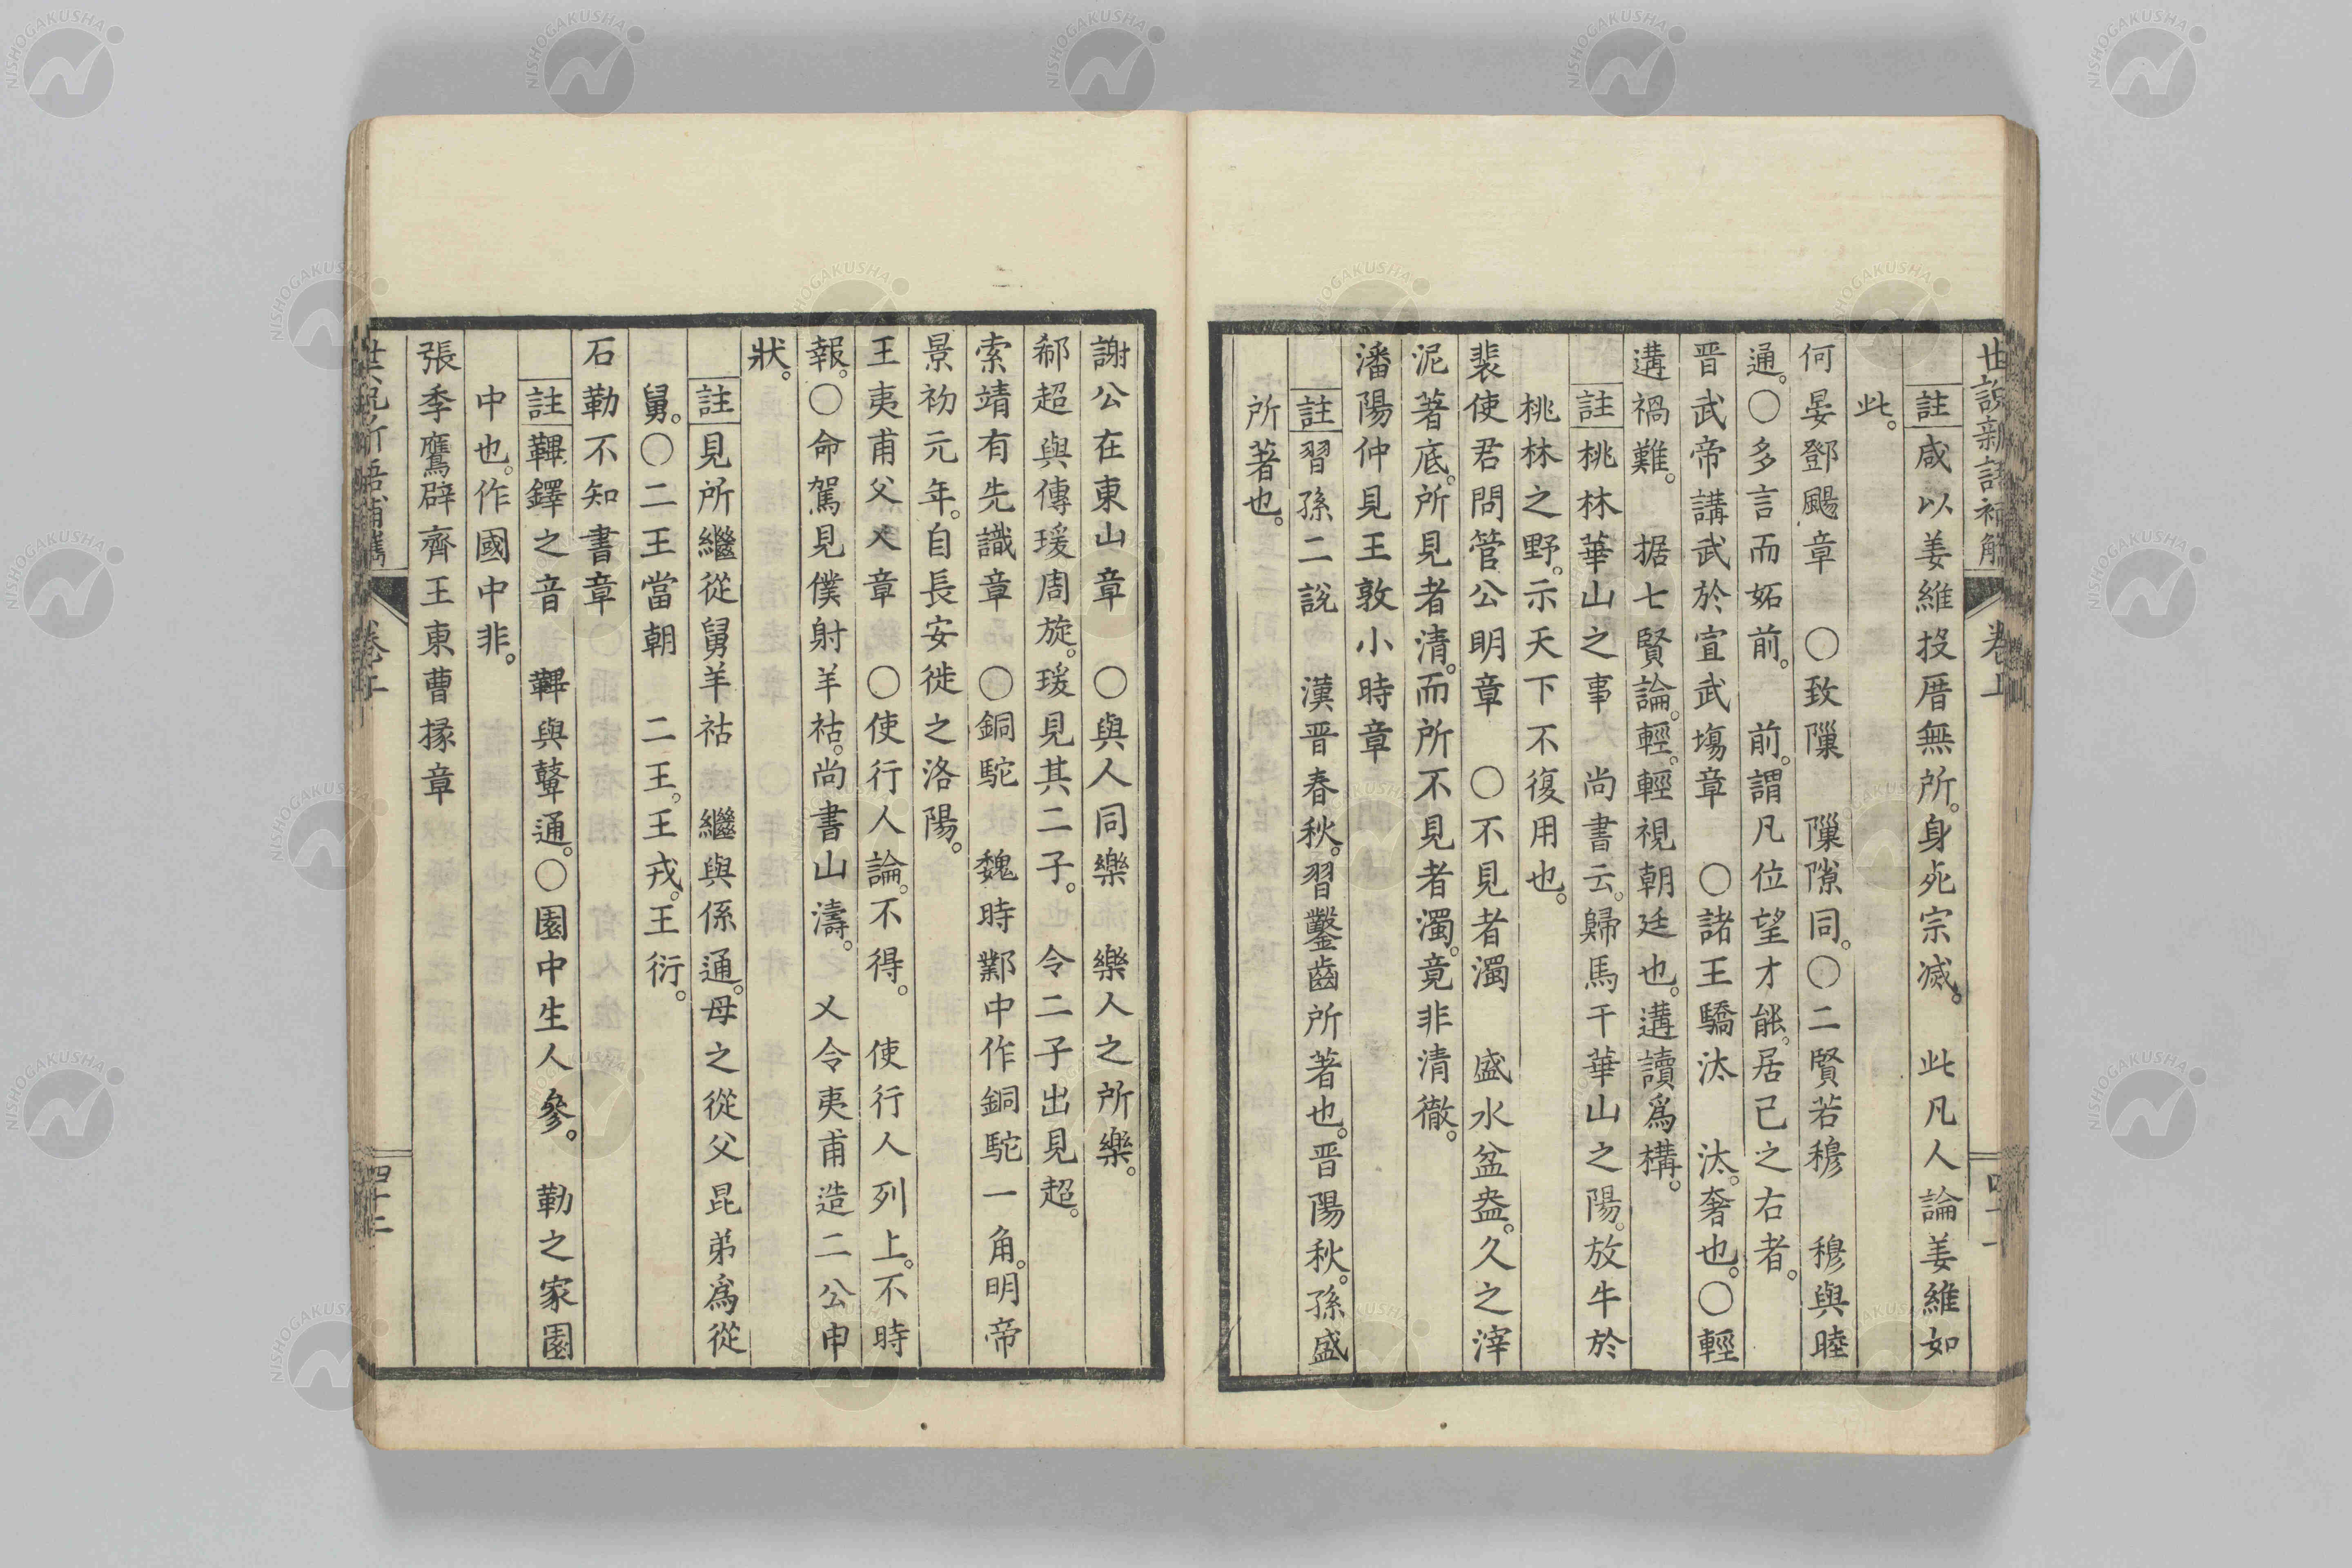 世說新語補觿 卷上
註 咸以姜維投厝無所。身死宗滅。 此凡人論姜維如
此。
何晏鄧颺章 ○致隟 隟隙同。○二賢若穆 穆與睦
通。○多言而妬前。 前。謂凡位望才能。居己之右者。
晋武帝講武於宣武塲章 ○諸王驕汰 汰。奢也。○輕
遘禍難。 据七賢論。輕。輕視朝廷也。遘讀爲構。
註 桃林華山之事 尚書云。歸馬于華山之陽。放牛於
桃林之野。示天下不復用也。
裴使君問管公明章 ○不見者濁 盛水盆盎。久之滓
泥著底。所見者清。而所不見者濁。竟非清徹。
潘陽仲見王敦小時章
註 習孫二說 漢晋春秋。習鑿齒所著也。晋陽秋。孫盛
所著也。
謝公在東山章 ○與人同樂 樂人之所樂。
郗超與傅瑗周旋。瑗見其二子。 令二子出見超。
索靖有先識章 ○銅駝 魏時鄴中作銅駝一角。明帝
景初元年。自長安徙之洛陽。
王夷甫父乂章 ○使行人論。不得。 使行人列上。不時
報。○命駕見僕射羊祜。尚書山濤。 乂令夷甫造二公申
狀。
註 見所繼從舅羊祜 繼與係通。母之從父昆弟爲從
舅。○二王當朝 二王。王戎。王衍。
石勒不知書章
註 鞞鐸之音 鞞與鼙通。○園中生人參。 勒之家園
中也。作國中非。
張季鷹辟齊王東曹掾章
四十二